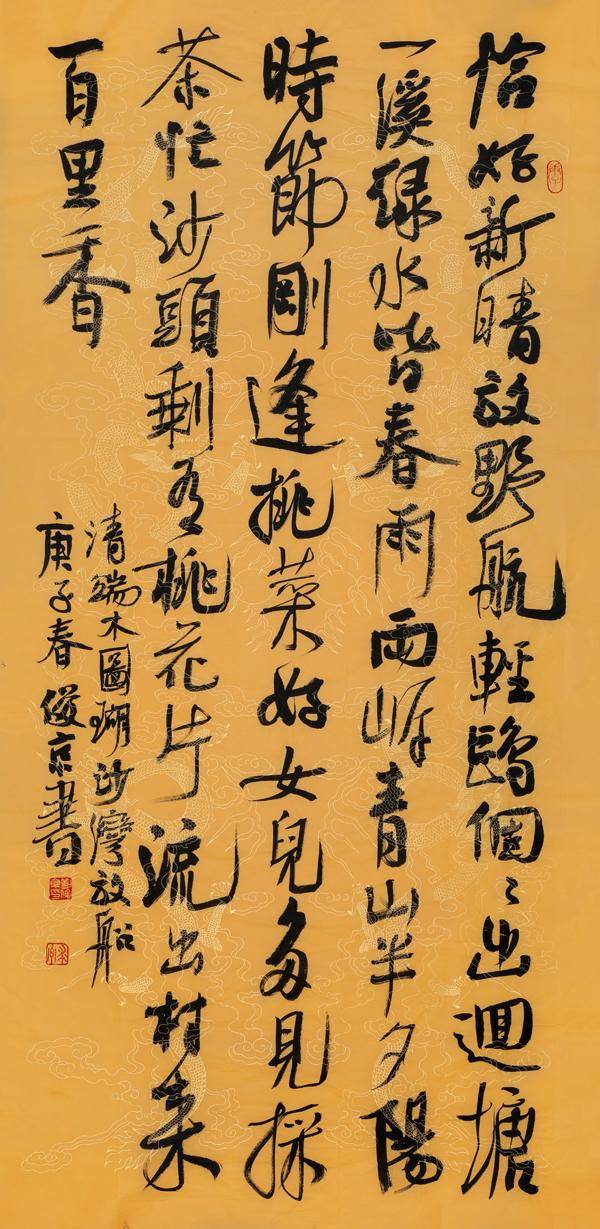 恰好新晴放野航輕鷗個々出迴塘
一溪緑水皆春雨兩岸青山半夕陽
時節剛逢挑菜好女兒多見採
茶忙沙頭剩有桃花片流出村来
百里香
清端木圖瑚沙灣放船
庚子春俊京書